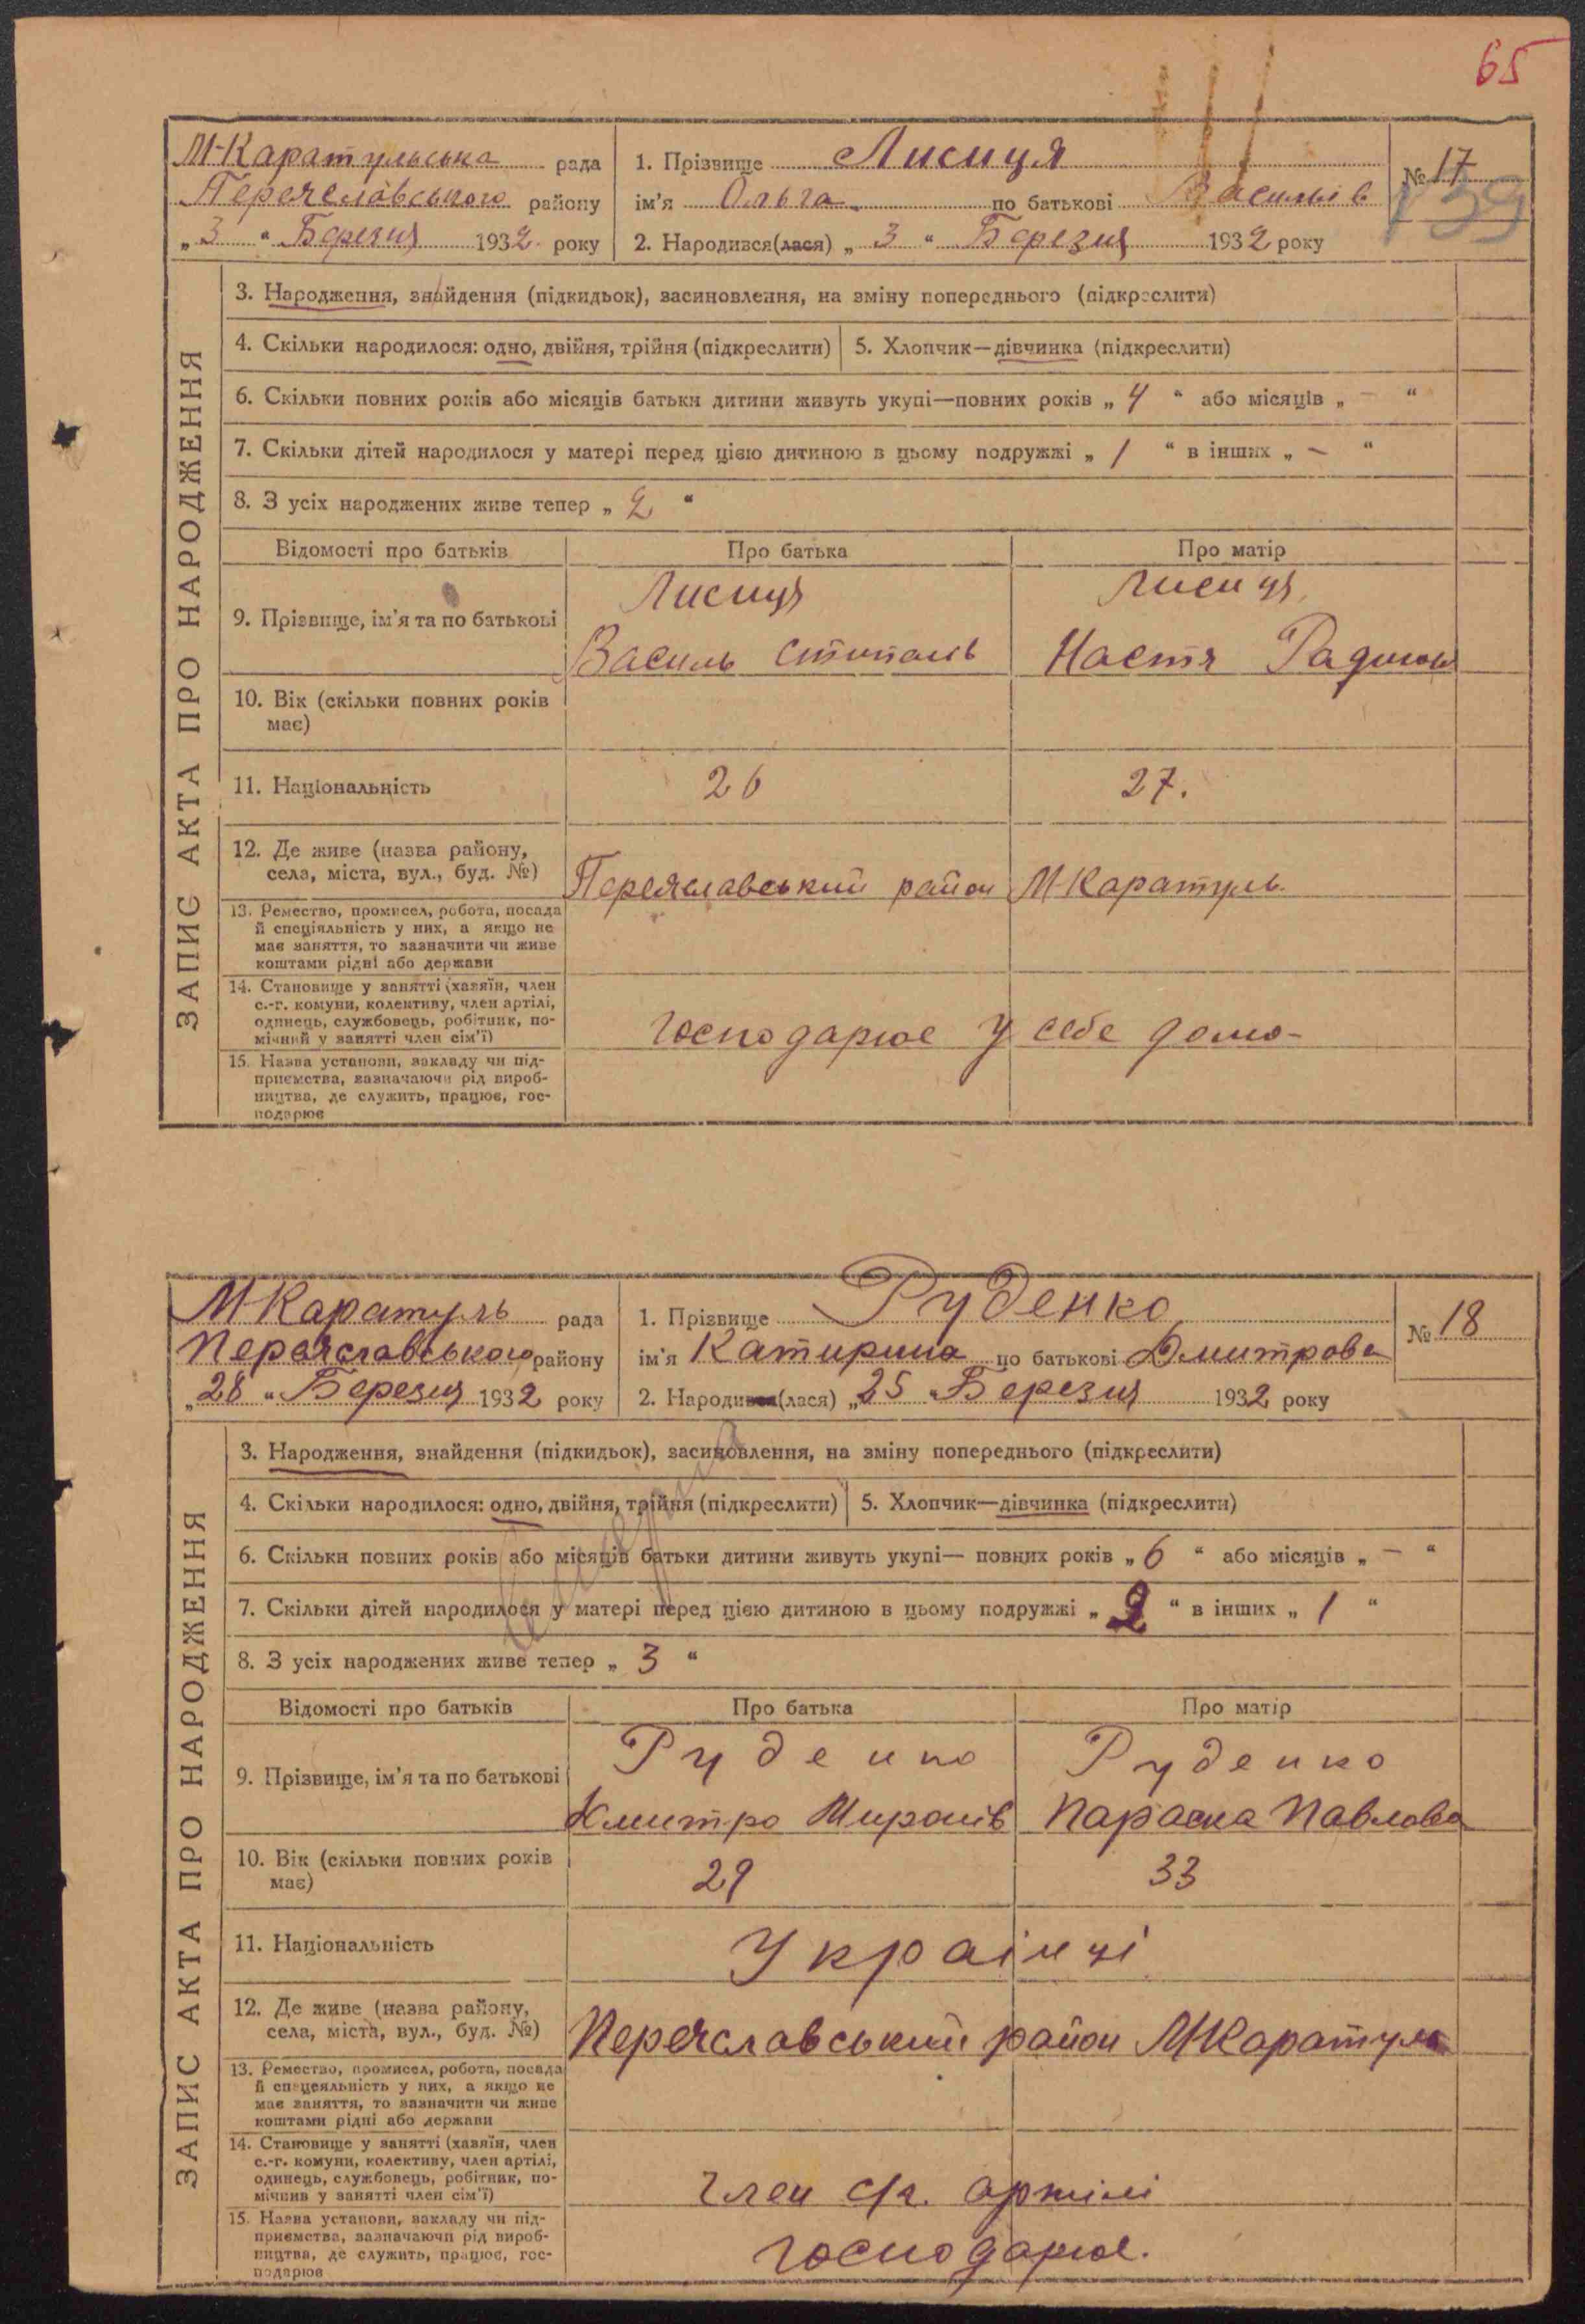 65
М-Каратульська рада
Переяславського району
„3" Березня 1932 року
1. Прізвище Лисиця
ім'я Ольга по батькові Василів
2. Народився(лася) „3" Березня 1932 року
№ 17
139
ЗАПИС АКТА ПРО НАРОДЖЕННЯ
3. Народження, знайдення (підкидьок), засиновлення, на зміну попереднього (підкреслити)
4. Скільки народилося: одно, двійня, трійня (підкреслити) 5. Хлопчик—дівчинка (підкреслити)
6. Скільки повних років або місяців батьки дитини живуть укупі—повних років „4" або місяців „—"
7. Скільки дітей народилося у матері перед цією дитиною в цьому подружжі „1" в інших „—"
8. З усіх народжених живе тепер „2"
Відомості про батьків Про батька Про матір
Лисиця Лисиця
9. Прізвище, ім'я та по батькові
Василь Настя
10. Вік (скільки повних років
має)
11. Національність 26 27.
12. Де живе (назва району,
села, міста, вул., буд. №) Переяславський район М-Каратуль
13. Ремество, промисел, робота, посада
й спеціяльність у них, а якщо не
має заняття, то зазначити чи живе
коштами рідні або держави
14. Становище у занятті (хазяїн, член
с.-г. комуни, колективу, член артілі,
одинець, службовець, робітник, по-
мічний у занятті член сім'ї) господарює у себе дома
15. Назва установи, закладу чи під-
приємства, зазначаючи рід вироб-
ництва, де служить, працює, гос-
подарює
М-Каратуль рада
Переяславського району
„28" Березня 1932 року
1. Прізвище Руденко
ім'я Катирина по батькові Дмитрова
2. Народився(лася) „25" Березня 1932 року
№ 18
ЗАПИС АКТА ПРО НАРОДЖЕННЯ
3. Народження, знайдення (підкидьок), засиновлення, на зміну попереднього (підкреслити)
4. Скільки народилося: одно, двійня, трійня (підкреслити) 5. Хлопчик—дівчинка (підкреслити)
6. Скільки повних років або місяців батьки дитини живуть укупі— повних років „6" або місяців „—"
7. Скільки дітей народилося у матері перед цією дитиною в цьому подружжі „2" в інших „1"
8. З усіх народжених живе тепер „3"
Відомості про батьків Про батька Про матір
Руденко Руденко
9. Прізвище, ім'я та по батькові
Дмитро Миронів Параска Павлова
10. Вік (скільки повних років
має) 29 33
11. Національність Українці
12. Де живе (назва району,
села, міста, вул., буд. №) Переяславський район М Каратуль
13. Ремество, промисел, робота, посада
й спецеяльність у них, а якщо не
має заняття, то зазначити чи живе
коштами рідні або держави
14. Становище у занятті (хазяїн, член
с.-г. комуни, колективу, член артілі,
одинець, службовець, робітник, по-
мічнив у занятті член сім'ї) член с/г. артілі
15. Назва установи, закладу чи під-
приємства, зазначаючи рід вироб-
ництва, де служить, працює, гос-
подарює господарює.